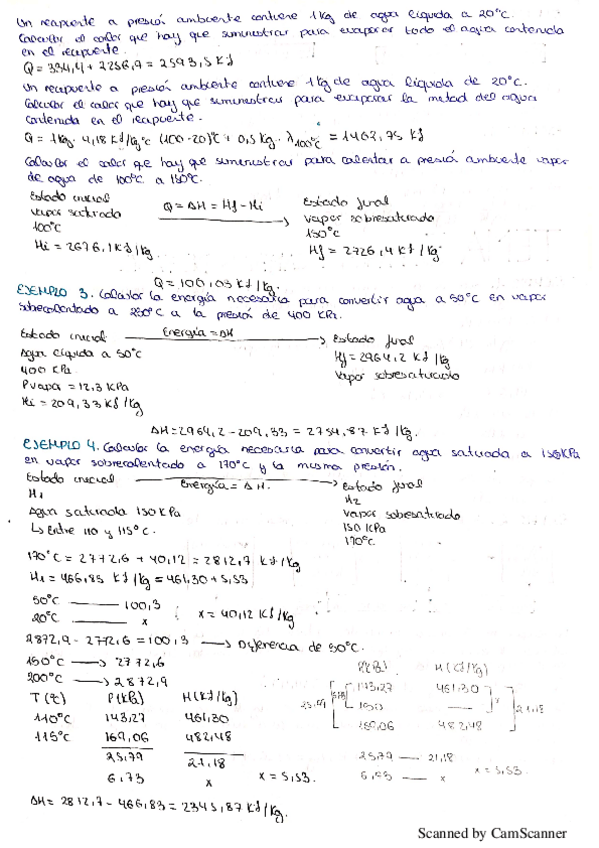 Un recapiente a presión ambiente contiene 1kg de agua líquida a 20°C.
Calcular el calor que hay que suministrar para evaporar todo el agua contenida
en el recipiente.
Q = 334,4 + 2256,9 = 2593,5 KJ
Un recapuente a presión ambiente contiene 1 kg de agua líquida de 20°C.
Calcular el calor que hay que suministrar para evaporar la mitad del agua
contenida en el recipiente.
Q = 1kg · 4,18 KJ/kg°C (100-20)°C + 0,5 kg · λ100°C = 1462,75 KJ
Calcular el calor que hay que suministrar para calentar a presión ambiente vapor
de agua de 100°C a 150°C.
Estado inicial Q = ΔH = Hf - Hi Estado final
vapor saturado vapor sobresaturado
100°C 150°C
Hi = 2676,1 KJ/kg Hf = 2726,4 KJ/kg
Q = 100,03 KJ/kg.
EJEMPLO 3. Calcular la energía necesaria para convertir agua a 50°C en vapor
sobrecalentado a 250°C a la presión de 400 KPa.
Estado inicial Energía = ΔH Estado final
Agua líquida a 50°C Hf = 2964,2 KJ/kg
400 KPa vapor sobresaturado
Pvapor = 12,3 KPa
Hi = 209,33 KJ/kg
ΔH = 2964,2 - 209,33 = 2754,87 KJ/kg.
EJEMPLO 4. Calcular la energía necesaria para convertir agua saturada a 150KPa
en vapor sobrecalentado a 170°C y la misma presión.
Estado inicial Energía = ΔH. Estado final
H1 H2
Agua saturada 150 KPa vapor sobresaturado
↳ Entre 110 y 115°C. 150 KPa
170°C
170°C = 2772,6 + 40,12 = 2812,7 KJ/kg
H1 = 466,85 KJ/kg = 461,30 + 5,53
50°C 100,3
20°C x x = 40,12 KJ/kg
2872,9 - 2772,6 = 100,3 → Diferencia de 50°C.
150°C → 2772,6
200°C → 2872,9
P(KPa) H(KJ/kg)
143,27 461,30
150
169,06 482,48
25,79 21,18
T(°C) P(KPa) H(KJ/kg)
110°C 143,27 461,30
115°C 169,06 482,48
25,79 21,18
6,73 x x = 5,53.
25,79 21,18
x x = 5,53.
ΔH = 2812,7 - 466,83 = 2345,87 KJ/kg.
Scanned by CamScanner